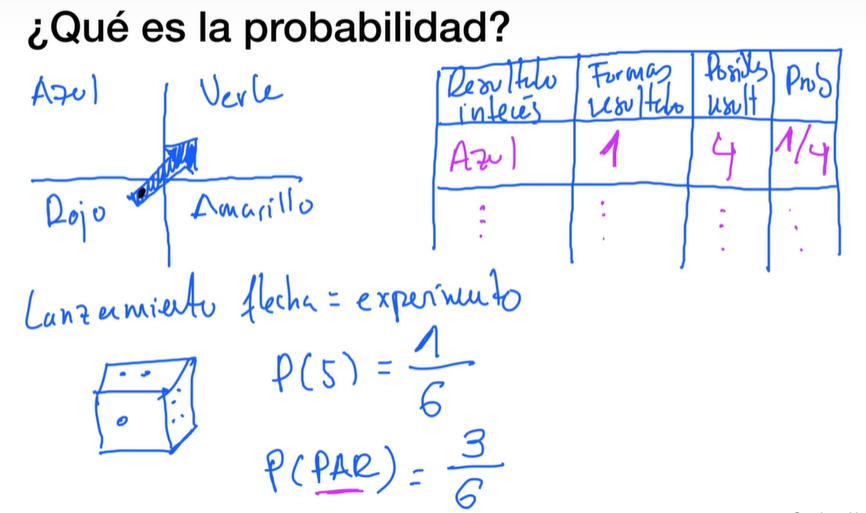 ¿Qué es la probabilidad?
Azul Verde
Rojo Amarillo
Resultado interés Formas resultado Posibles result Prob
Azul 1 4 1/4
Lanzamiento flecha = experimento
P(5) = 1/6
P(PAR) = 3/6